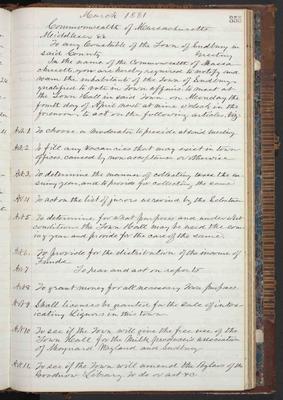 March 1881
333
Commonwealth of Massachusetts
Middlesex ss
To any Constable of the Town of Sudbury in
said County Greeting
In the name of the Commonwealth of Massa-
chusetts you are hereby required to notify and
warn the inhabitants of the Town of Sudbury
qualified to vote in Town affairs to meet at
the Town Hall in said Town on Monday the
fourth day of April next at nine o'clock in the
forenoon to act on the following articles, Viz:
Art. 1 To choose a Moderator to preside at said meeting
Art. 2 To fill any vacancies that may exist in town
offices, caused by non acceptance or otherwise
Art. 3 To determine the manner of collecting taxes the en-
suing year, and to provide for collecting the same
Art. 4 To act on the list of jurors as revised by the Selectmen
Art. 5 To determine for what purposes and under what
conditions the Town Hall may be used the ensu-
ing year and provide for the care of the same.
Art. 6 To provide for the distribution of the income of
Funds
Art. 7 To hear and act on reports
Art. 8 To grant money for all necessary Town purposes
Art. 9 Shall licenses be granted for the Sale of intox-
icating Liquors in this town
Art. 10 To see if the Town will give the free use of the
Town Hall for the Milk producers association
of Maynard Wayland and Sudbury
Art. 11 To see if the Town will amend the Bylaws of the
Goodnow Library, to do or act &c